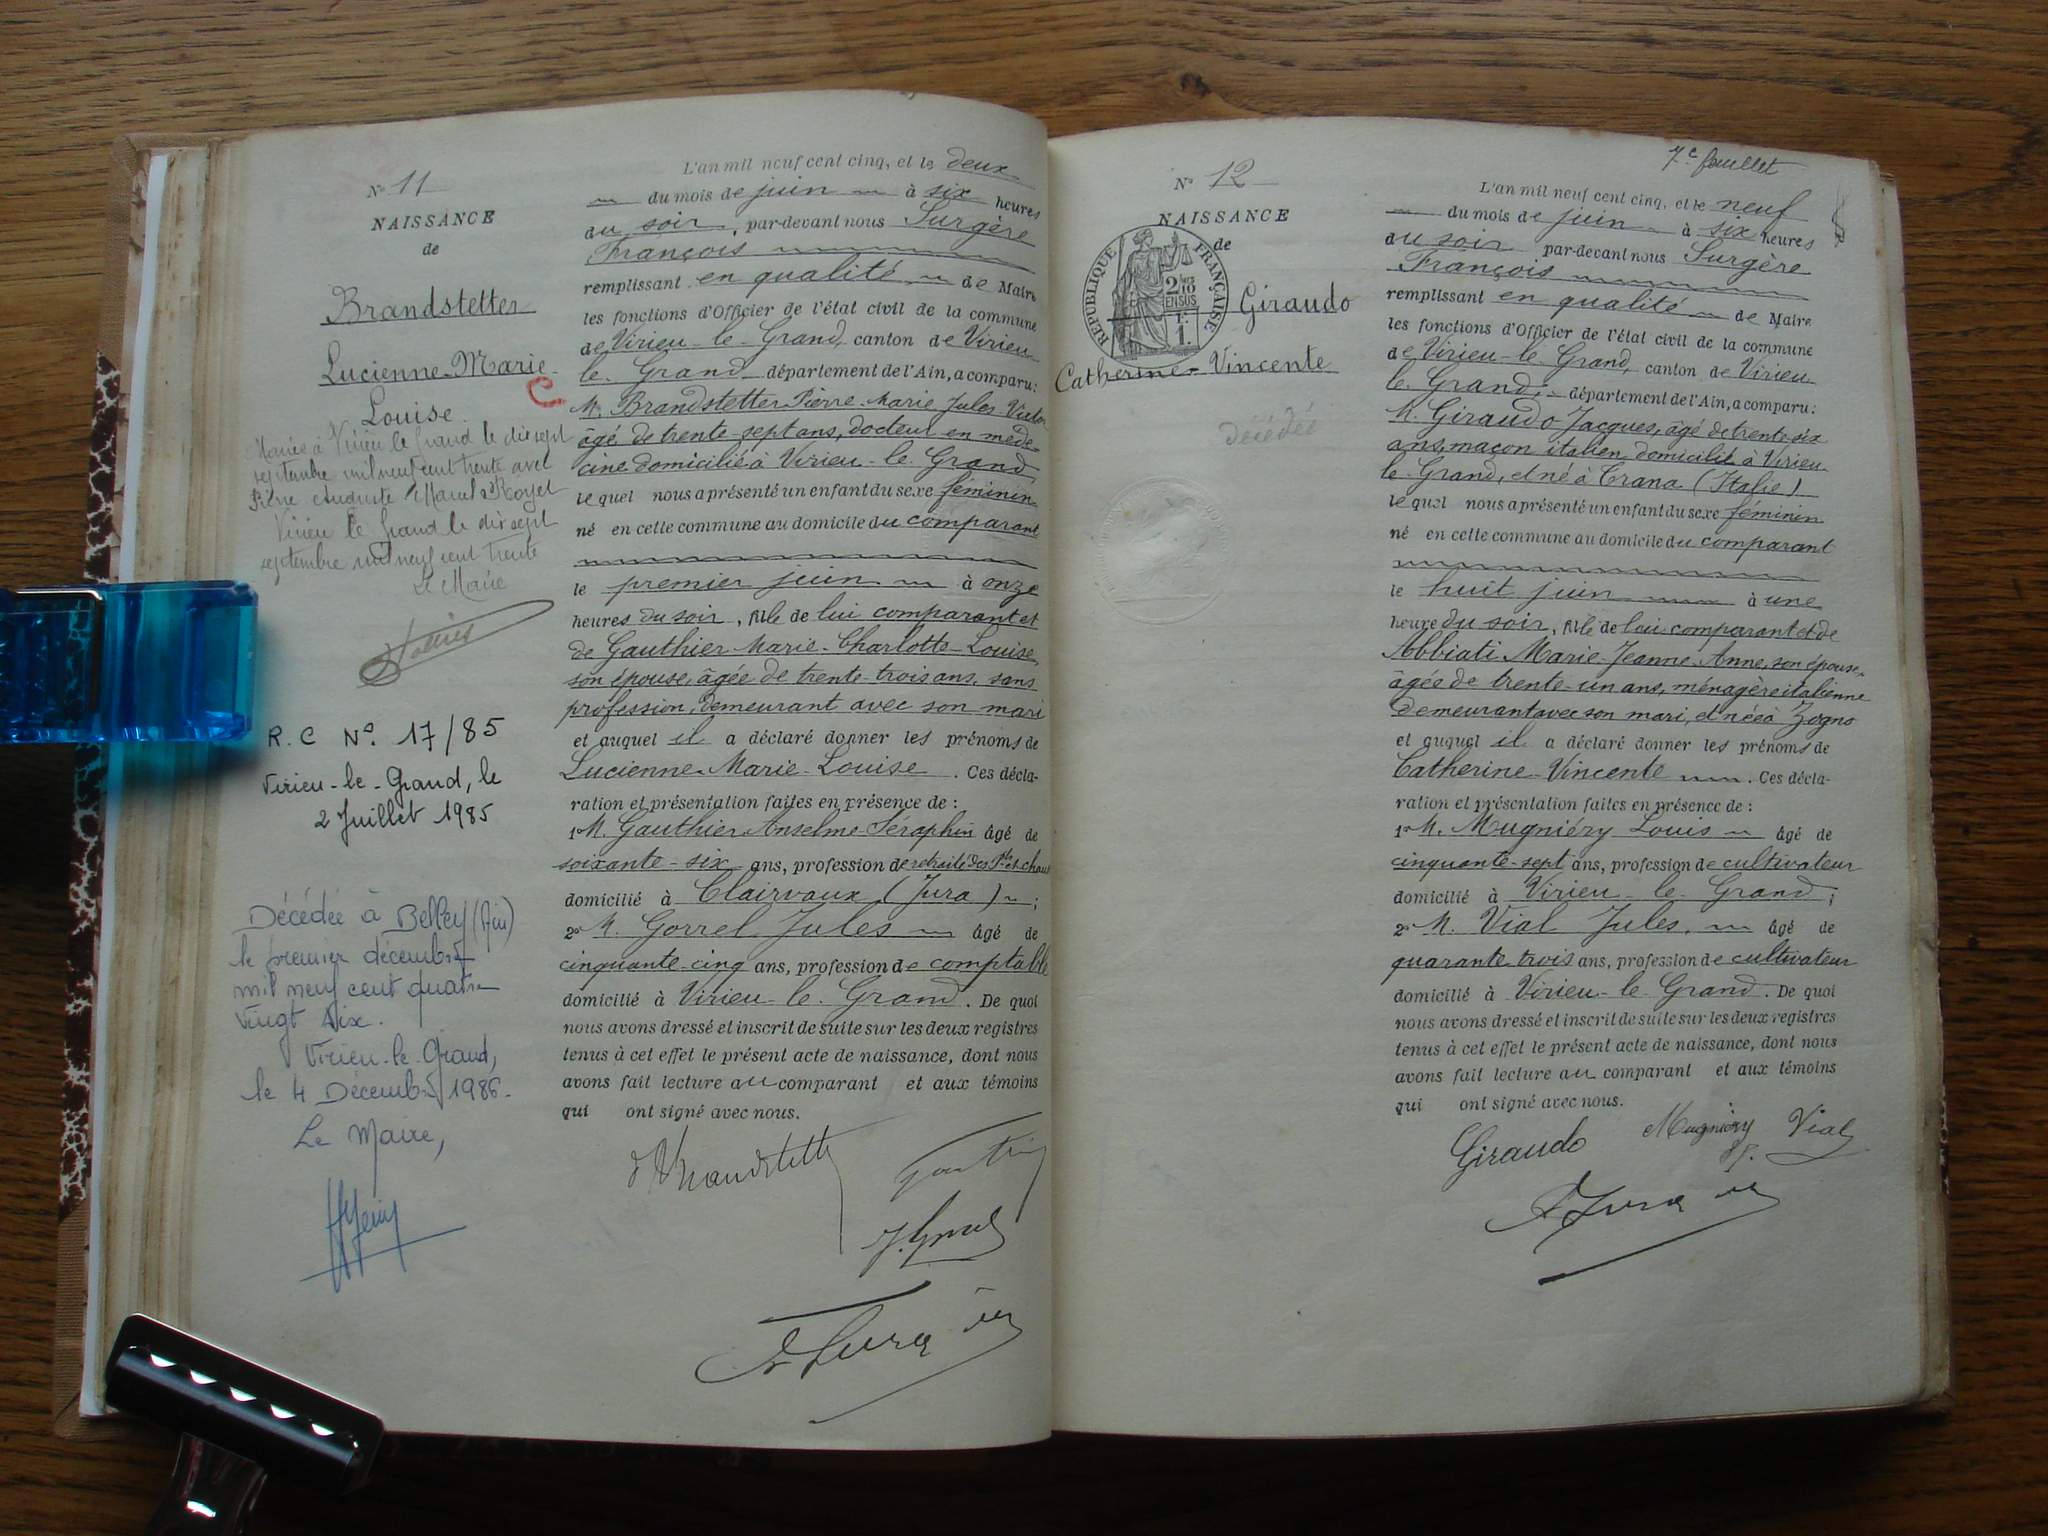 N° 11
NAISSANCE
de
Brandstetter
Lucienne-Marie-
Louise.
Mariée à Virieu le Grand le dix sept
septembre mil neuf cent trente avec
Pierre Auguste Marcel Royet
Virieu le Grand le dix sept
septembre mil neuf cent trente
Le Maire
R.C N°. 17/85
Virieu-le-Grand, le
2 Juillet 1985
Décédée à Belley (Ain)
le premier décembre
mil neuf cent quatre
vingt six.
Virieu-le-Grand,
le 4 Décembre 1986.
Le Maire,
L'an mil neuf cent cinq, et le deux
du mois de juin à six heures
du soir, par-devant nous Surgère
François
remplissant en qualité de Maire
les fonctions d'Officier de l'état civil de la commune
de Virieu-le-Grand, canton de Virieu-
le-Grand département de l'Ain, a comparu:
M. Brandstetter Pierre-Marie Jules Victor
âgé de trente-sept ans, docteur en méde-
cine domicilié à Virieu-le-Grand
le quel nous a présenté un enfant du sexe féminin
né en cette commune au domicile du comparant
le premier juin à onze
heures du soir, fille de lui comparant et
de Gauthier Marie-Charlotte-Louise,
son épouse, âgée de trente-trois ans, sans
profession, demeurant avec son mari
et auquel il a déclaré donner les prénoms de
Lucienne-Marie-Louise. Ces décla-
ration et présentation faites en présence de :
1° M. Gauthier Anselme-Séraphin âgé de
soixante-six ans, profession de retraité des Pts et chaus
domicilié à Clairvaux (Jura) ;
2° M. Gorrel Jules âgé de
cinquante-cinq ans, profession de comptable
domicilié à Virieu-le-Grand. De quoi
nous avons dressé et inscrit de suite sur les deux registres
tenus à cet effet le présent acte de naissance, dont nous
avons fait lecture au comparant et aux témoins
qui ont signé avec nous.
Brandstetter
J. Gorrel
7e feuillet
N° 12
NAISSANCE
de
RÉPUBLIQUE FRANÇAISE
2/10 EN SUS
1
Giraudo
Catherine-Vincente
décédée
L'an mil neuf cent cinq, et le neuf
du mois de juin à six heures
du soir par-devant nous Surgère
François
remplissant en qualité de Maire
les fonctions d'Officier de l'état civil de la commune
de Virieu-le-Grand, canton de Virieu-
le-Grand, département de l'Ain, a comparu:
M. Giraudo Jacques, âgé de trente six
ans, maçon italien domicilié à Virieu-
le-Grand, et né à Trana (Italie)
le quel nous a présenté un enfant du sexe féminin
né en cette commune au domicile du comparant
le huit juin à une
heure du soir, fille de lui comparant et de
Abbiati Marie-Jeanne-Anne, son épouse,
âgée de trente-un ans, ménagère italienne
demeurant avec son mari, et née à Zogno
et auquel il a déclaré donner les prénoms de
Catherine-Vincente. Ces décla-
ration et présentation faites en présence de :
1° M. Mugniéry Louis âgé de
cinquante-sept ans, profession de cultivateur
domicilié à Virieu-le-Grand ;
2° M. Vial Jules, âgé de
quarante trois ans, profession de cultivateur
domicilié à Virieu-le-Grand. De quoi
nous avons dressé et inscrit de suite sur les deux registres
tenus à cet effet le présent acte de naissance, dont nous
avons fait lecture au comparant et aux témoins
qui ont signé avec nous.
Giraudo Mugniéry Vial